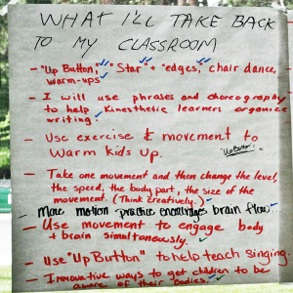 WHAT I'LL TAKE BACK
TO MY CLASSROOM
- "Up Button," "Star" + "edges," chair dance,
warm-ups
- I will use phrases and choreography
to help kinesthetic learners organize
writing.
- Use exercise & movement to
Warm kids up.
"Up Button"
- Take one movement and then change the level,
the speed, the body part, the size of the
movement. (Think creatively.)
- More motion practice encourages brain flow
- Use movement to engage body
+ brain simultaneously.
- Use "Up Button" to help teach singing.
- Innovative ways to get children to be
aware of their bodies.